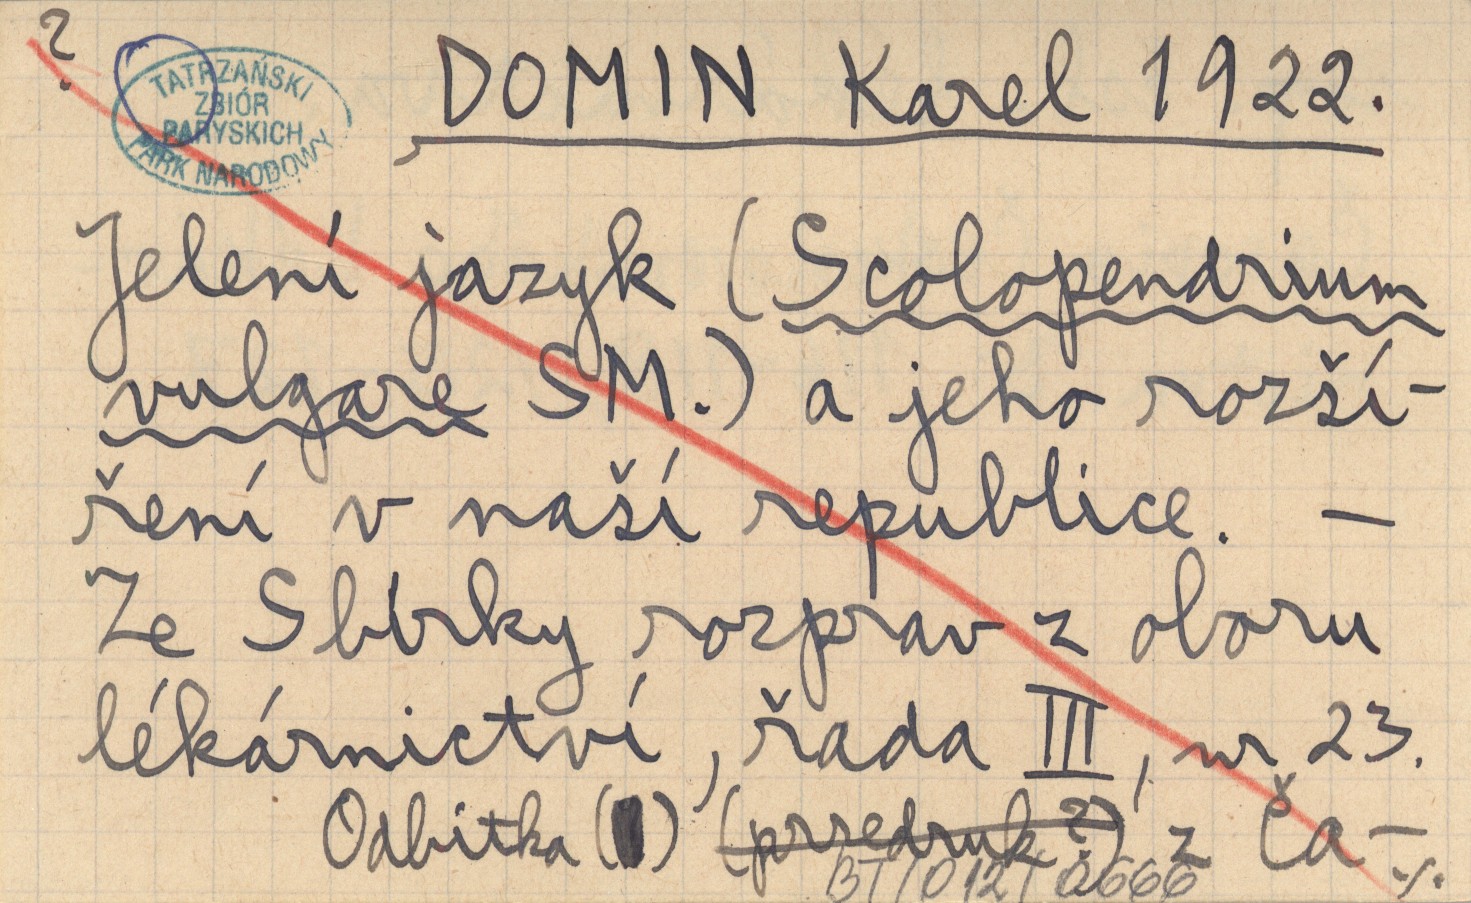 ?
TATRZAŃSKI
ZBIÓR
PARYSKICH
PARK NARODOWY
DOMIN Karel 1922.
Jelení jazyk (Scolopendrium
vulgare SM.) a jeho rozší-
ření v naší republice. —
Ze Sbírky rozprav z oboru
lékárnictví, řada III, nr 23.
Odbitka () (przedruk?) z Ča-
BT/012/0666 ./.